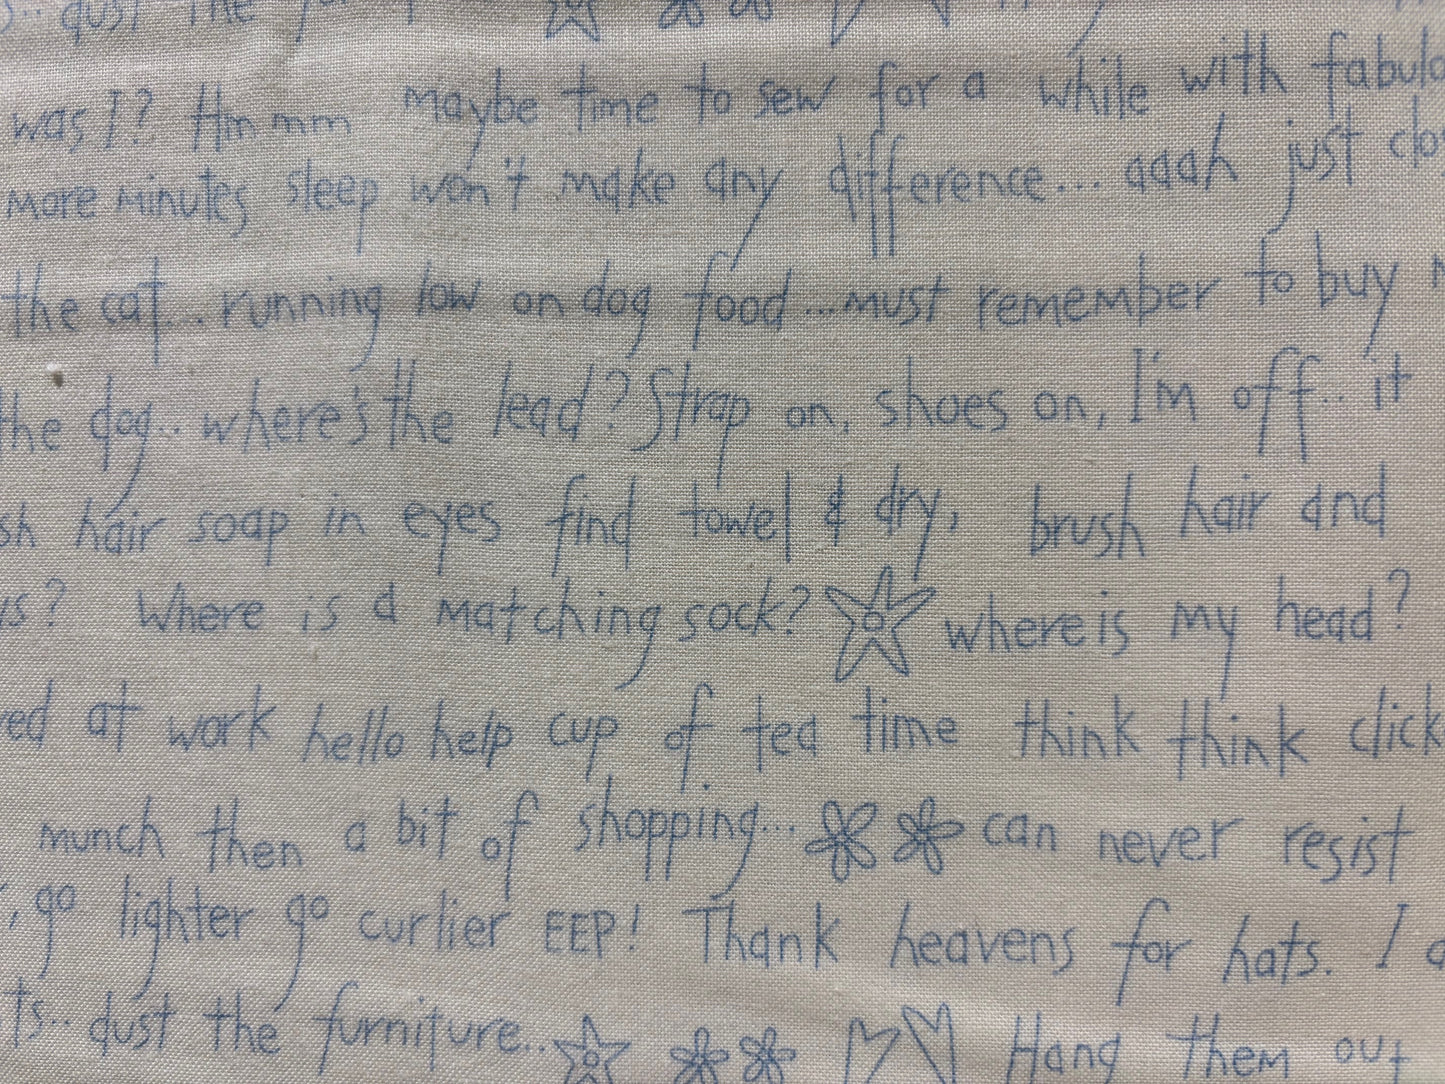 dust the
was I? Hmmmm maybe time to sew for a while with
more minutes sleep won't make any difference... aaah just
the cat... running low on dog food ...must remember to buy
the dog.. where's the lead? Strap on, shoes on, I'm off.. it
hair soap in eyes find towel & dry, brush hair and
Where is a matching sock? where is my head?
at work hello help cup of tea time think think click
munch then a bit of shopping... can never resist
go lighter go curlier EEP! Thank heavens for hats. I
dust the furniture.. Hang them out